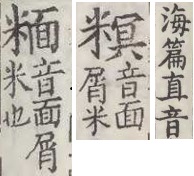 海篇直音
音面
屑米
糆
音面屑
米也